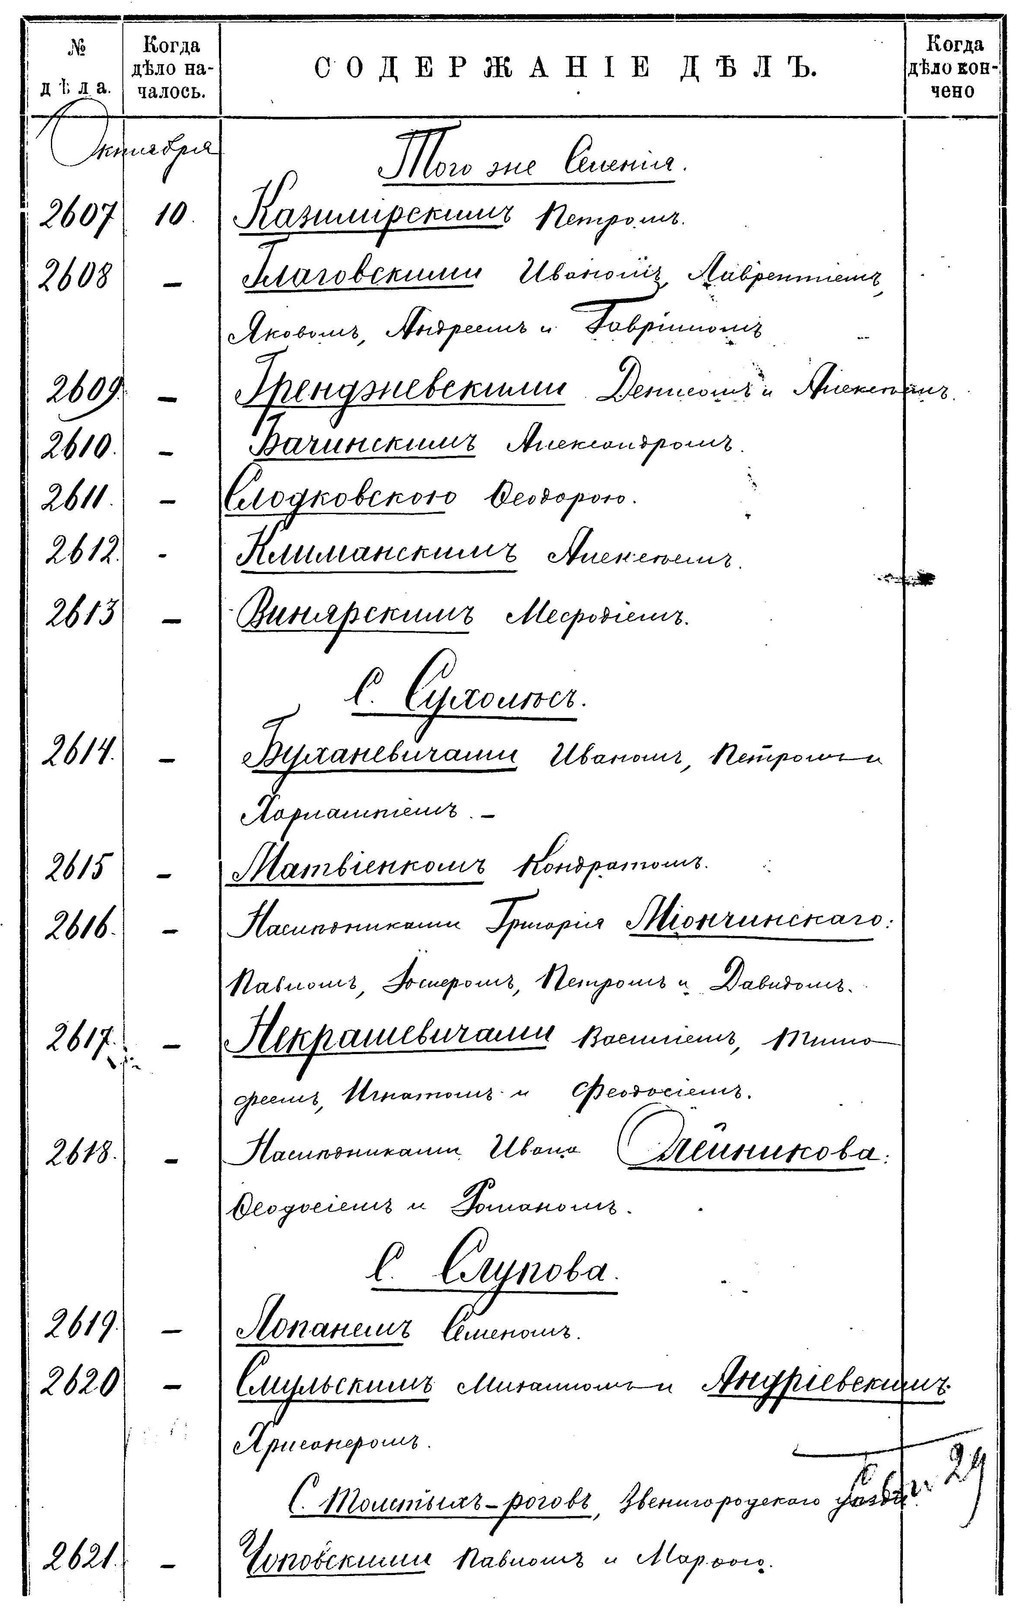 № дѣла. Когда дѣло на-чалось. СОДЕРЖАНІЕ ДѢЛЪ. Когда дѣло кон-чено
Октября
Того же Селенія.
2607 10. Казимірскимъ Петромъ.
2608 — Глаговскими Иваномъ, Лаврентіемъ,
Яковомъ, Андреемъ и Гавріиломъ
2609. — Гренджевскими Денисомъ и Алексѣемъ.
2610. — Бачинскимъ Александромъ.
2611. — Слодковскою Ѳеодорою.
2612. - Климанскимъ Алексѣемъ.
2613 — Винярскимъ Мефодіемъ.
С. Сухолѣсъ.
2614. — Буханевичами Иваномъ, Петромъ и
Харлампіемъ. —
2615 — Матвіенкомъ Кондратомъ.
2616. — Наслѣдниками Григорія Міончинскаго:
Павломъ, Іосифомъ, Петромъ и Давидомъ.
2617. — Некрашевичами Василіемъ, Тимо
феемъ, Игнатомъ и Феодосіемъ.
2618. — Наслѣдниками Ивана Олейникова:
Ѳеодосіемъ и Романомъ.
С. Слупова.
2619. — Лопанемъ Семеномъ.
2620 — Смульскимъ Михаиломъ и Андріевскимъ
Хрисанфомъ.
С. Толстыхъ-роговъ, Звенигородскаго уѣзда.
29
2621. — Чоповскими Павломъ и Марѳою.